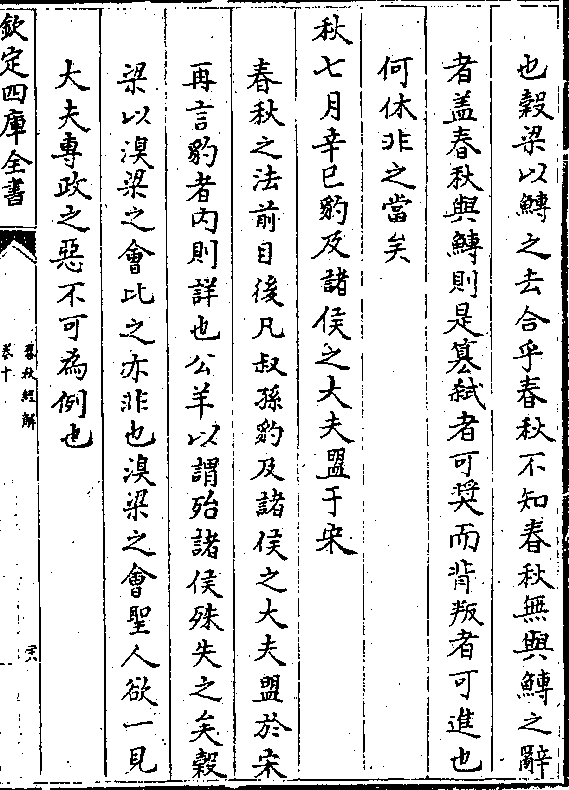 也糓梁以鱄之去合乎春秋不知春秋無與鱄之辭
者盖春秋與鱄則是簒弑者可奨而背叛者可進也
何休非之當矣
秋七月辛巳豹及諸侯之大夫盟于宋
春秋之法前目後凡叔孫豹及諸侯之大夫盟於宋
再言豹者内則詳也公羊以謂殆諸侯殊失之矣穀
梁以溴梁之會比之亦非也溴梁之會聖人欲一見
大夫專政之惡不可為例也
欽定四庫全書
春秋經解
卷十